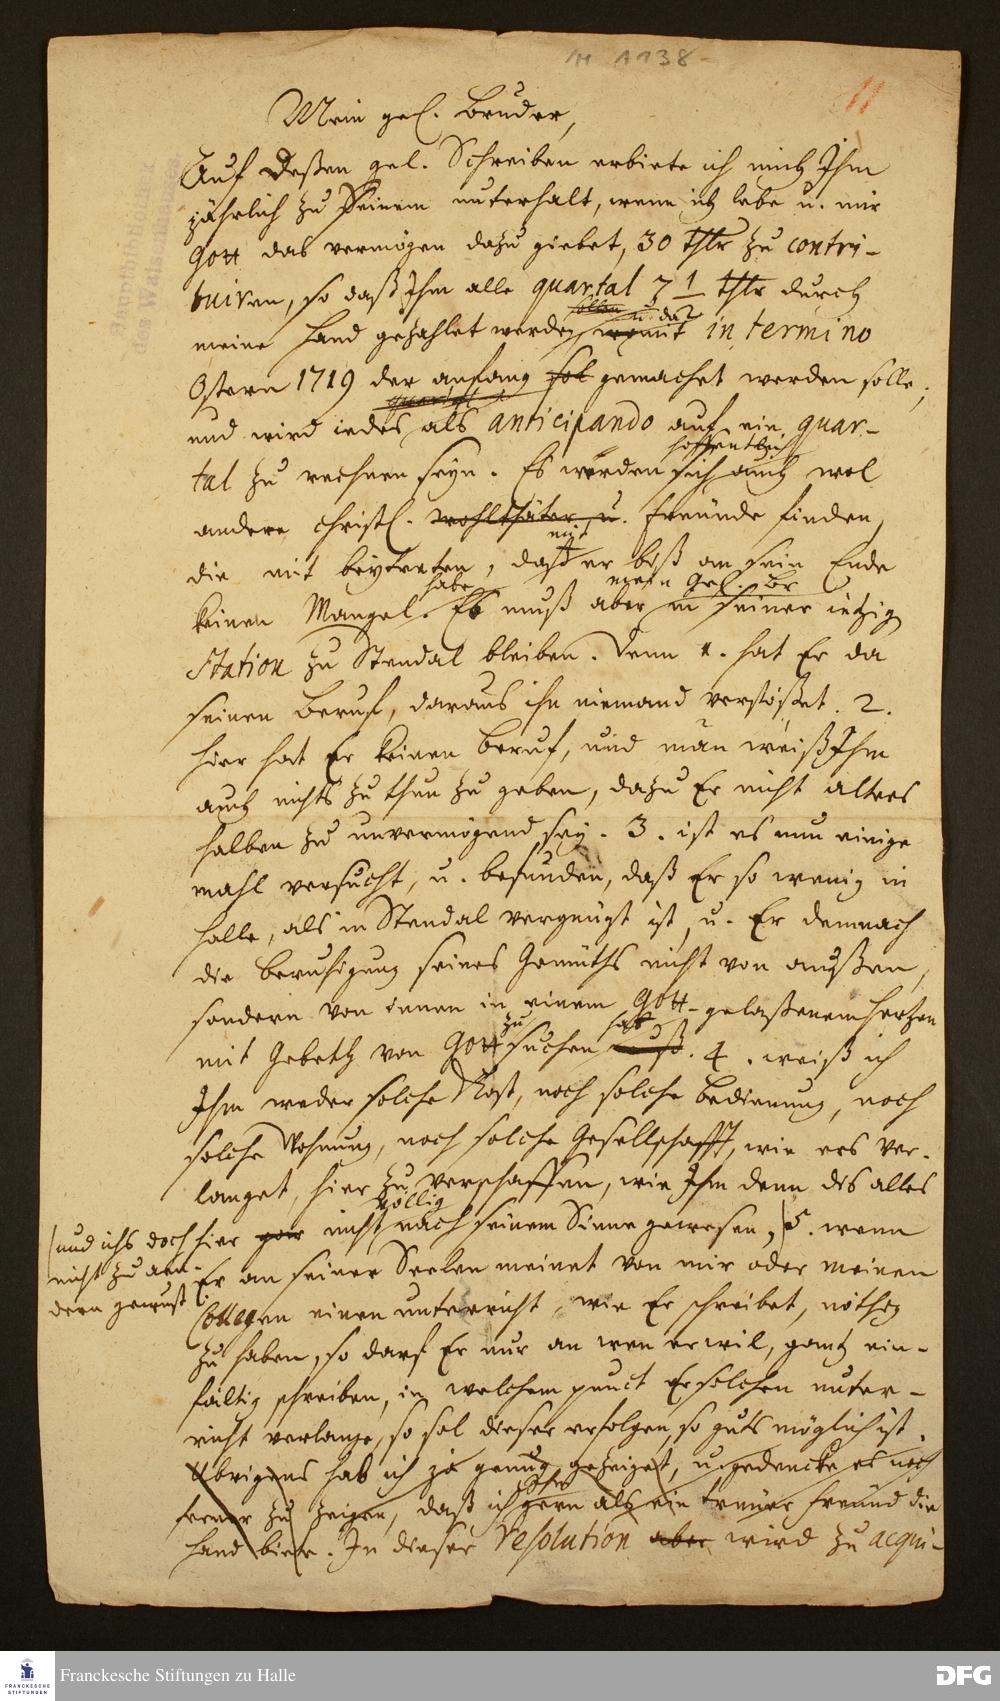 /H 1138-
11
Mein gel. Bruder,
Auf Deßen gel. Schreiben erbiete ich mich Ihm
jährlich zu Seinem unterhalt, wenn ich lebe u. mir
Gott das vermögen dazu giebet, 30 Thlr zu contri-
buiren, so daß Ihm alle quartal 7 1 Thlr durch
sollen u. daß
meine Hand gezahlet werden womit in termino
Ostern 1719 der anfang sol gemachet werden solle,
quartal
und wird iedes als anticipando auf ein quar-
hoffentlich
tal zu rechnen seyn. Es werden sich auch wol
andere christl. wohlthäter u. Freunde finden,
mit
die mit beytreten, daß er biß an sein Ende
habe mein Gel. Br
keinen Mangel. Es muß aber in seiner ietzig
Station zu Stendal bleiben. Denn 1. hat Er da
seinen Beruf, daraus ihn niemand verstößet. 2.
hier hat Er keinen Beruf, und man weiß Ihm
auch nichts zu thun zu geben, dazu Er nicht alters
halben zu unvermögend sey. 3. ist es nun einige
mahl versucht, u. befunden, daß Er so wenig in
Halle, als in Stendal vergnügt ist, u. Er demnach
die beruhigung seines Gemüths nicht von außen,
sondern von innen in einem Gott-gelaßenem Hertzen
zu hat
mit Gebeth von Gott suchen muß. 4. weiß ich
Ihm weder solche Kost, noch solche bedienung, noch
solche Wohnung, noch solche Gesellschafft, wie ers ver-
langet, hier zu verschaffen, wie Ihm denn dis alles
völlig
hier gar nicht nach seinem Sinne gewesen, 5. wenn
und ichs doch
nicht zu än-
dern gewust
Er an seiner Seelen meinet von mir oder meinen
Collegen einen unterricht, wie Er schreibet, nöthig
zu haben, so darf Er nur an wen er wil, gantz ein-
fältig schreiben, in welchem punct Er solchen unter-
richt verlange, so sol dieser erfolgen so guts möglich ist.
Übrigens hab ich ja genug gezeiget, u. gedencke es noch
Ihm
ferner zu zeigen, daß ich gern als ein treuer Freund die
Hand biete. In dieser resolution aber wird zu acqui-
Franckesche Stiftungen zu Halle
FRANCKESCHE
STIFTUNGEN
DFG